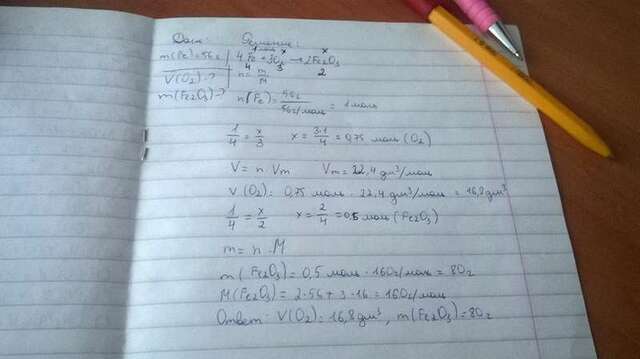 Дано: Решение:
1 моль x x
m(Fe)=56г 4Fe+3O2→2Fe2O3
4 3 2
V(O2)-? n=m/M
m(Fe2O3)-? n(Fe)=56г/56г/моль=1моль
1/4=x/3 x=3·1/4=0,75 моль(O2)
V=n·Vm Vm=22,4 дм³/моль
V(O2)=0,75 моль·22,4 дм³/моль=16,8дм³
1/4=x/2 x=2/4=0,5 моль(Fe2O3)
m=n·M
m(Fe2O3)=0,5 моль·160г/моль=80г
M(Fe2O3)=2·56+3·16=160г/моль
Ответ: V(O2)=16,8дм³, m(Fe2O3)=80г